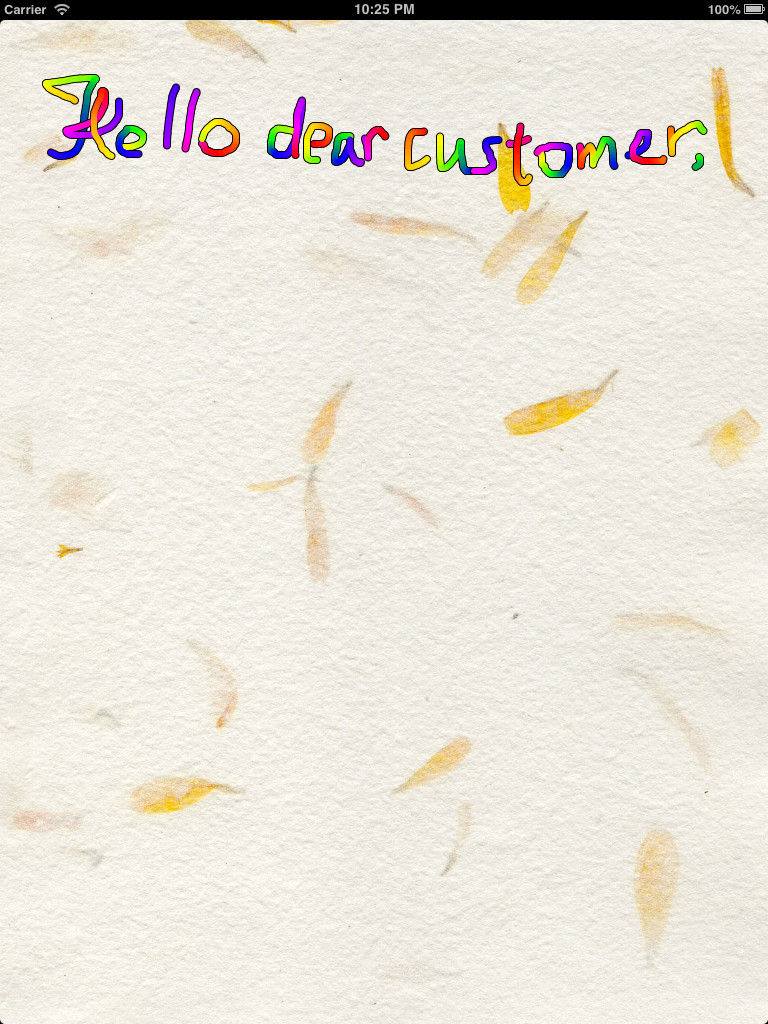 Carrier 10:25 PM 100%
Hello dear customer,